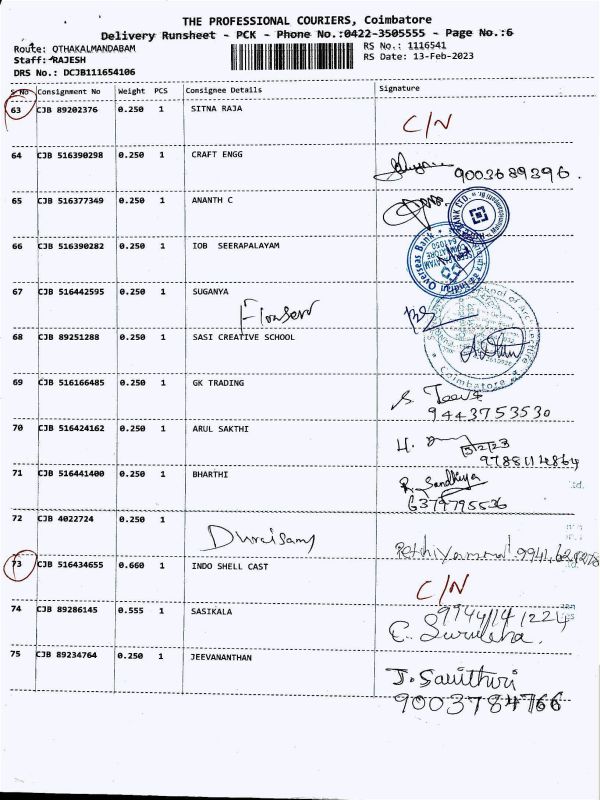 THE PROFESSIONAL COURIERS, Coimbatore
Delivery Runsheet - PCK - Phone No.:0422-3505555 - Page No.:6
Route: OTHAKALMANDABAM RS No.: 1116541
Staff: RAJESH RS Date: 13-Feb-2023
DRS No.: DCJB111654106
S No Consignment No Weight PCS Consignee Details Signature
63 CJB 89202376 0.250 1 SITNA RAJA
C/N
64 CJB 516390298 0.250 1 CRAFT ENGG
9003689396.
65 CJB 516377349 0.250 1 ANANTH C
66 CJB 516390282 0.250 1 IOB SEERAPALAYAM
Indian Overseas Bank
67 CJB 516442595 0.250 1 SUGANYA
68 CJB 89251288 0.250 1 SASI CREATIVE SCHOOL
School of Architecture
Coimbatore
69 CJB 516166485 0.250 1 GK TRADING
9443753530
70 CJB 516424162 0.250 1 ARUL SAKTHI
13/2/23
9788114864
71 CJB 516441400 0.250 1 BHARTHI
R. Sandhiya
6379795536
72 CJB 4022724 0.250 1
Duraisamy
73 CJB 516434655 0.660 1 INDO SHELL CAST
C/N
74 CJB 89286145 0.555 1 SASIKALA
9944141224
75 CJB 89234764 0.250 1 JEEVANANTHAN
J. Savithri
9003784766